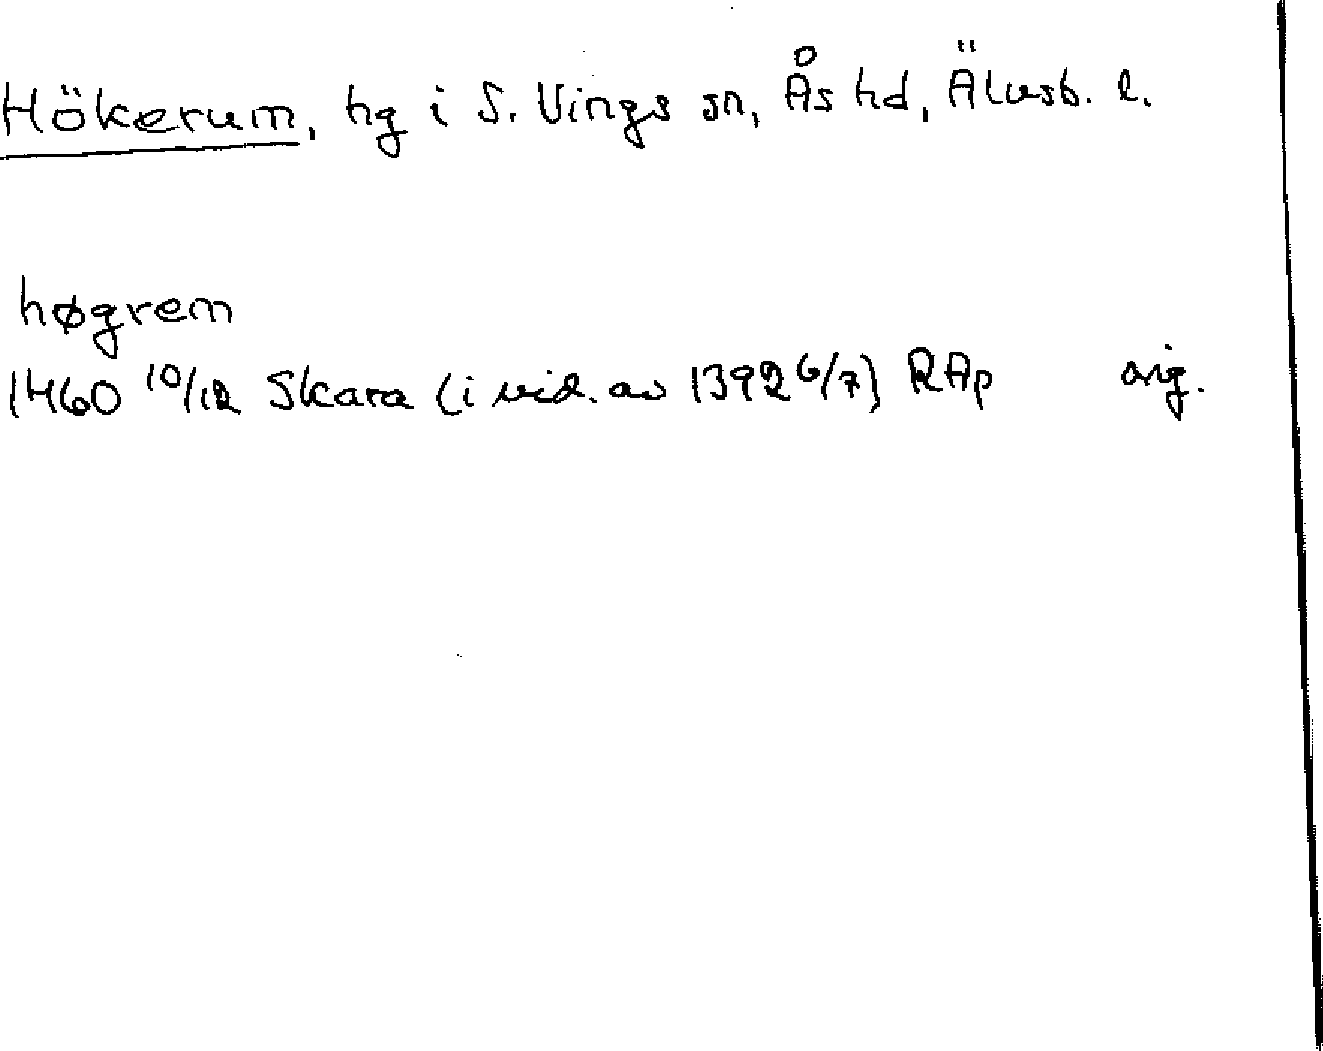 Hökerum, hg i S. Vings sn, Ås hd, Älvsb. l.
høgrem
1460 10/12 Skara (i vid. av 1392 6/7) RAp orig.